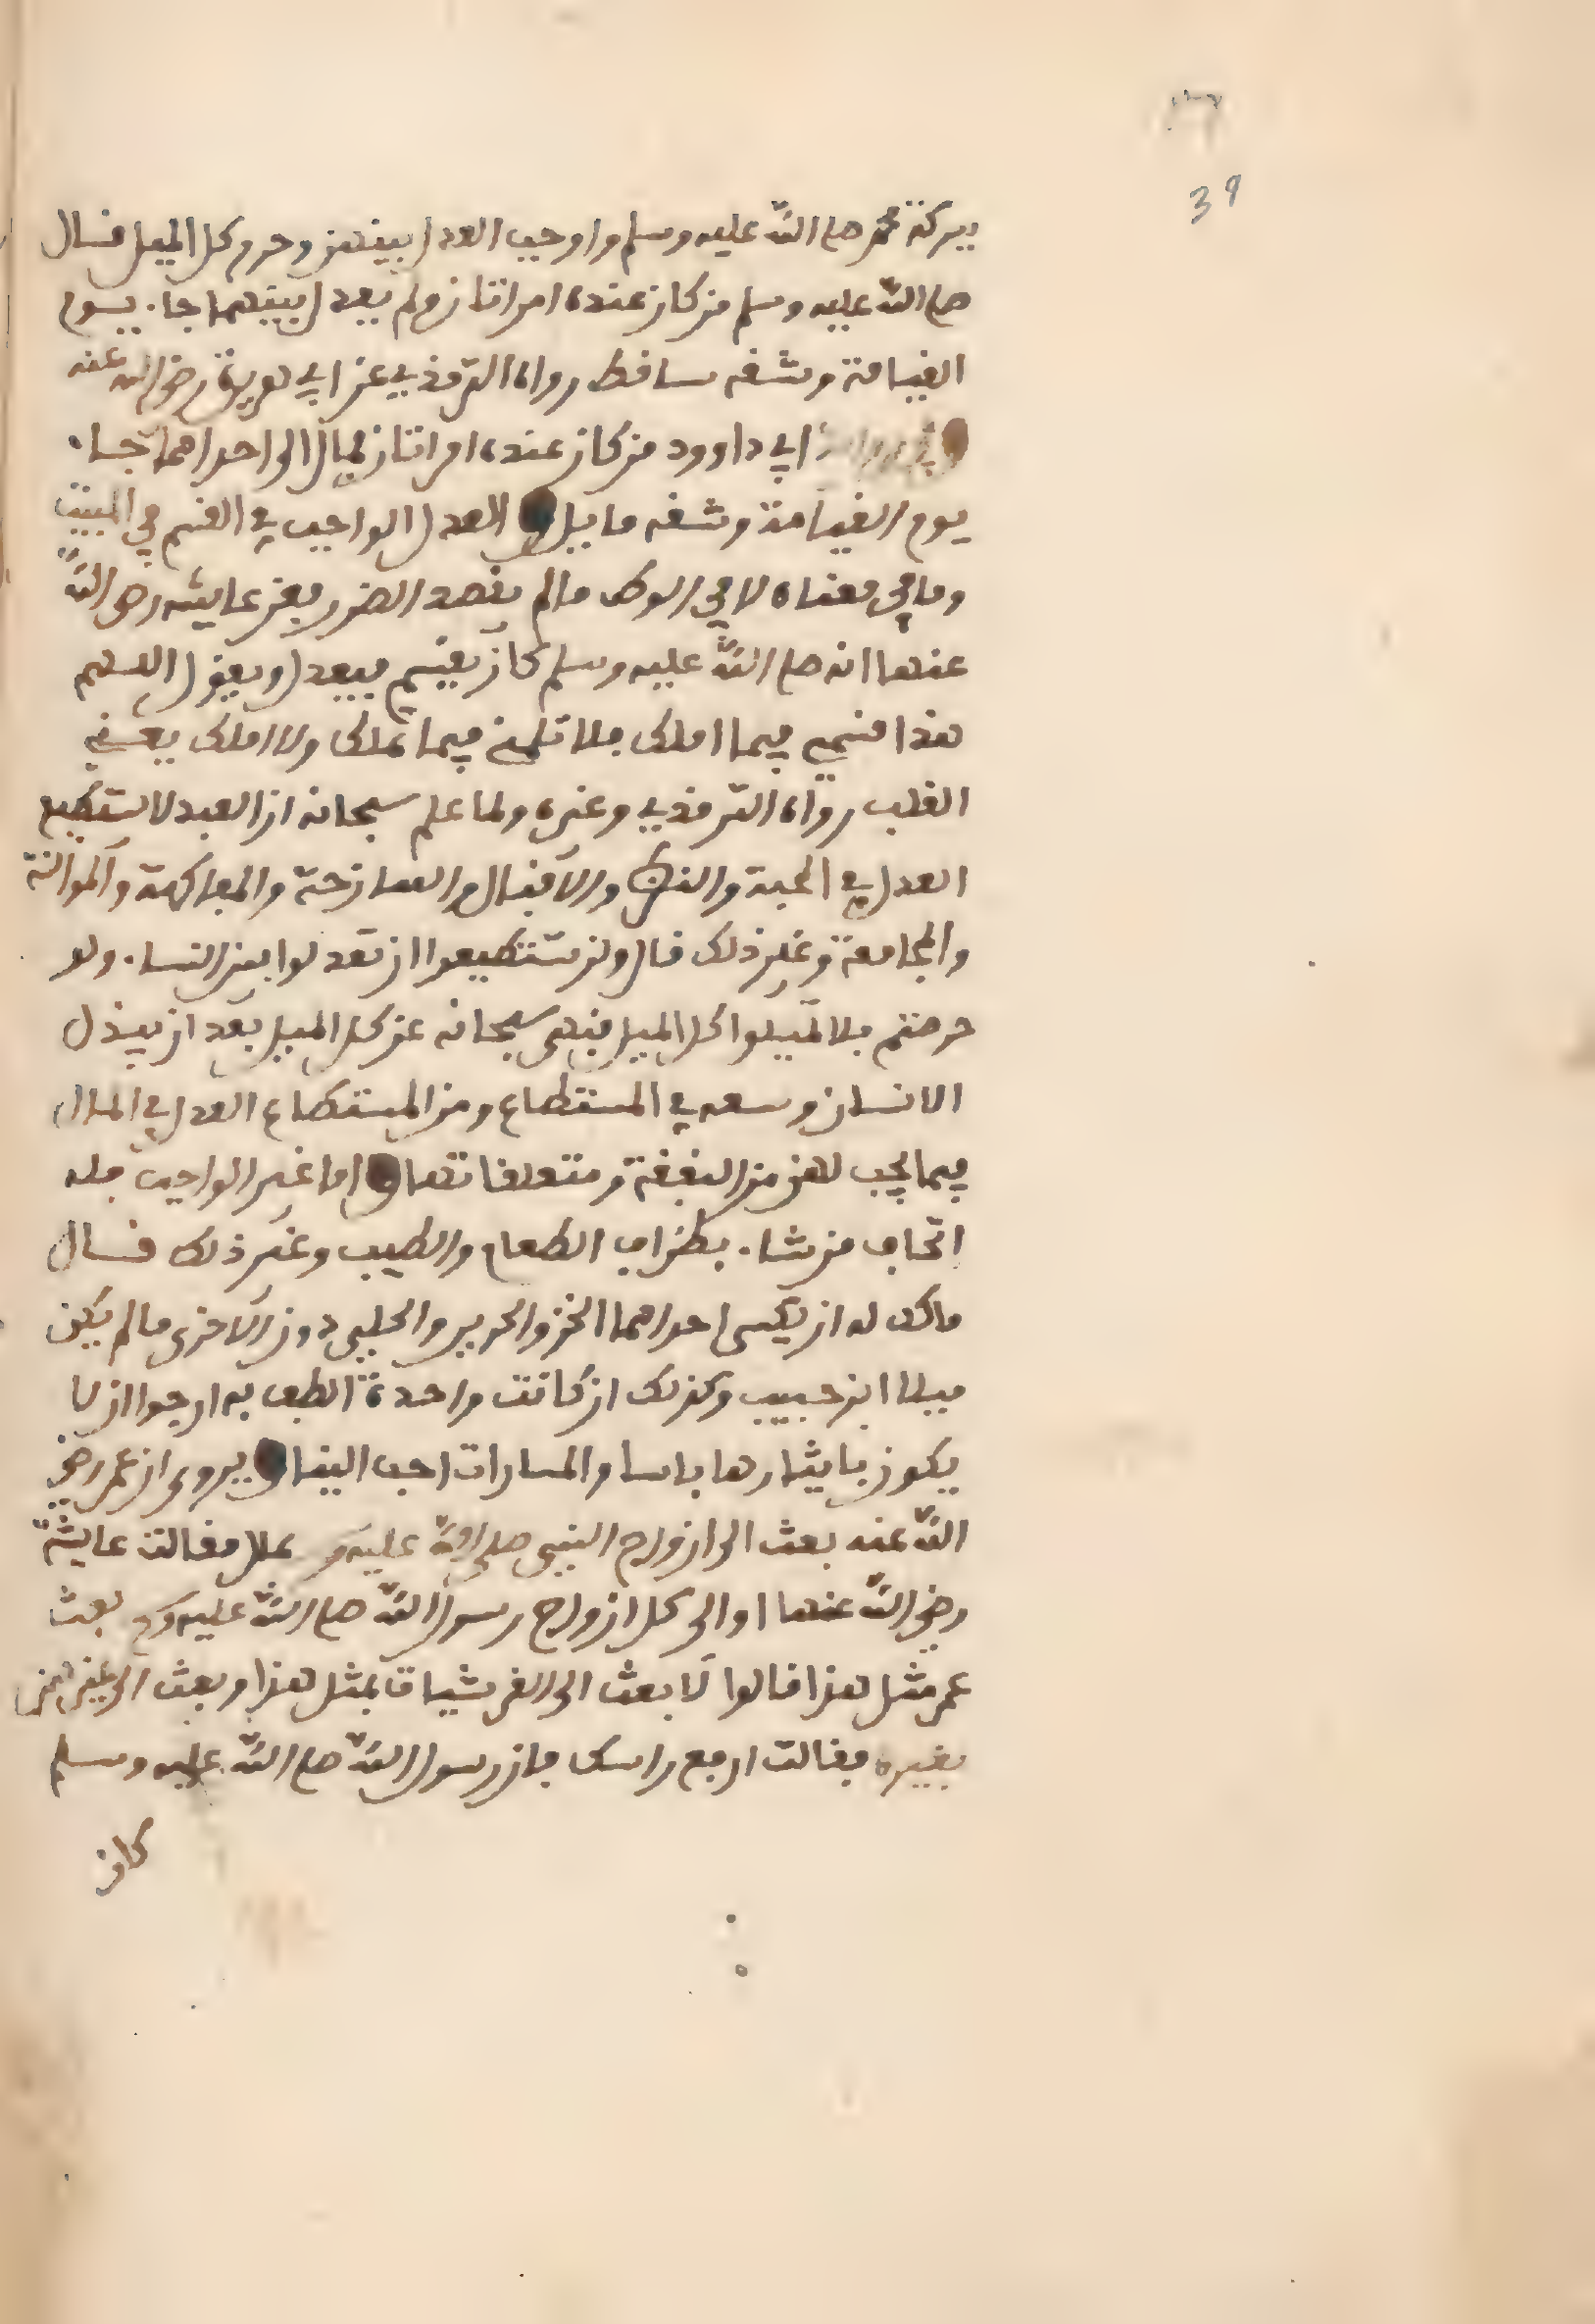 39
ببركة محمد صلى الله عليه وسلم واوجب العدل بينهن وحرم كل الميل فقال
صلى الله عليه وسلم من كان عنده امراتان ولم يعدل بينهما جاء يوم
القيامة وشقه ساقط رواه الترمذي عن ابي هريرة رضي الله عنه
ابي داوود من كان عنده امراتان فمال الى احداهما جاء
يوم القيامة وشقه مايل و العدل الواجب في القسم في المبيت
وما في معناه لا في الوطء ما لم يقصد الضرر فعن عايشة رضي الله
عنها انه صلى الله عليه وسلم كان يقسم فيعدل ويقول اللهم
هذا قسمي فيما املك فلا تلمني فيما تملك ولا املك يعني
القلب رواه الترمذي وغيره ولما علم سبحانه ان العبد لا يستطيع
العدل في المحبة والنظر والاقبال والممازحة والمفاكهة والموانسة
والمجامعة وغير ذلك قال ولن تستطيعوا ان تعدلوا بين النساء ولو
حرصتم فلا تميلوا كل الميل فنهى سبحانه عن كل الميل بعد ان يبذل
الانسان وسعه في المستطاع ومن المستطاع العدل في المال
فيما يجب لهن من النفقة ومتعلقاتها و اما غير الواجب فله
اتحاف من شاء بطراف الطعام والطيب وغير ذلك قال
مالك له ان يكسى احداهما الخز والحرير والحلي دون الاخرى ما لم يكن
ميلا ابن حبيب وكذلك ان كانت واحدة الطف به ارجوا ان لا
يكون بايثارها باسا والمساوات احب الينا و يروى ان عمر رضي
الله عنه بعث الى ازواج النبي صلى الله عليه وسلم بمال فقالت عايشة
رضي الله عنها اوالى كل ازواج رسول الله صلى الله عليه وسلم بعث
عمر مثل هذا قالوا لا بعث الى القرشيات بمثل هذا وبعث الى غيرهن
بغيره فقالت ارفع راسك فان رسول الله صلى الله عليه وسلم
كان